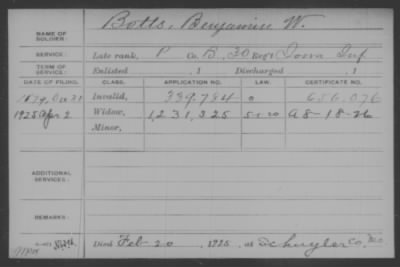 NAME OF SOLDIER: Botts, Benjamin W.
SERVICE: Late rank, P Co. B, 30 Reg't Iowa Inf
TERM OF SERVICE: Enlisted , 1 Discharged , 1
DATE OF FILING. CLASS. APPLICATION NO. LAW. CERTIFICATE NO.
Oct 31 Invalid, 339,784 656,076
1925 Apr 2 Widow, 1,231,325 A 8-18-26
Minor,
ADDITIONAL SERVICES:
REMARKS:
Died Feb 20, 1925, at Schuyler Co, Mo.